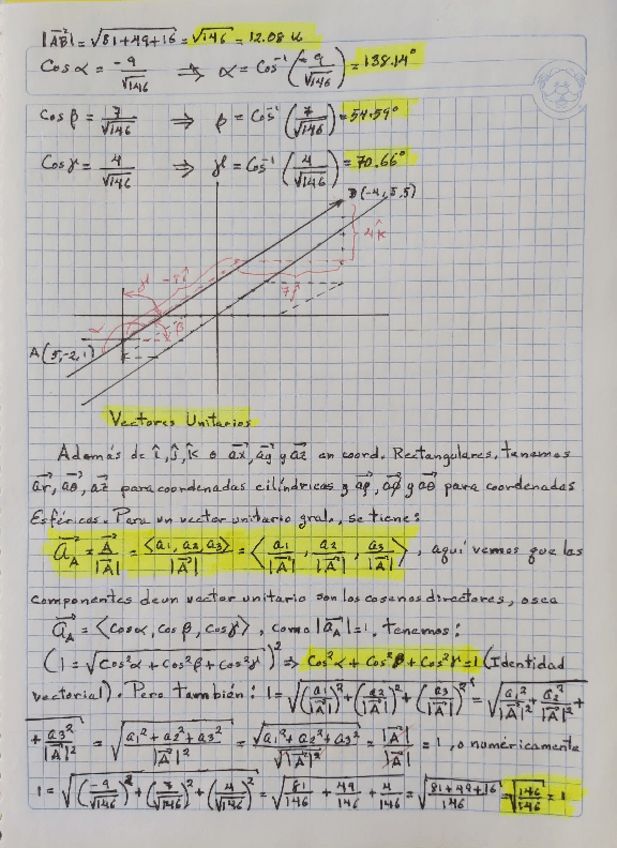 |AB| = √81+49+16 = √146 = 12.08 u
Cos α = -9/√146 ⇒ α = Cos⁻¹(-9/√146) = 138.14°
Cos β = 7/√146 ⇒ β = Cos⁻¹(7/√146) = 54.59°
Cos γ = 4/√146 ⇒ γ = Cos⁻¹(4/√146) = 70.66°
B(-4,5,5)
4k̂
-9î
γ
7ĵ
α
β
A(5,-2,1)
Vectores Unitarios
Además de î, ĵ, k̂ o ax, ay y az en coord. Rectangulares, tenemos
ar, aθ, az para coordenadas cilíndricas y aρ, aφ y aθ para coordenadas
Esféricas. Para un vector unitario gral., se tiene:
a_A = A/|A| = <a1, a2, a3>/|A| = <a1/|A|, a2/|A|, a3/|A|>, aquí vemos que las
componentes de un vector unitario son los cosenos directores, o sea
a_A = <cos α, cos β, cos γ>, como |a_A|=1, tenemos:
(1 = √cos²α + cos²β + cos²γ)² ⇒ cos²α + cos²β + cos²γ = 1 (Identidad
vectorial). Pero también: 1 = √(a1/|A|)² + (a2/|A|)² + (a3/|A|)² = √a1²/|A|² + a2²/|A|² +
+ a3²/|A|² = √a1² + a2² + a3²/|A|² = √a1² + a2² + a3²/√|A|² = |A|/|A| = 1, o numéricamente
1 = √(-9/√146)² + (7/√146)² + (4/√146)² = √81/146 + 49/146 + 4/146 = √81+49+16/146 = √146/146 = 1